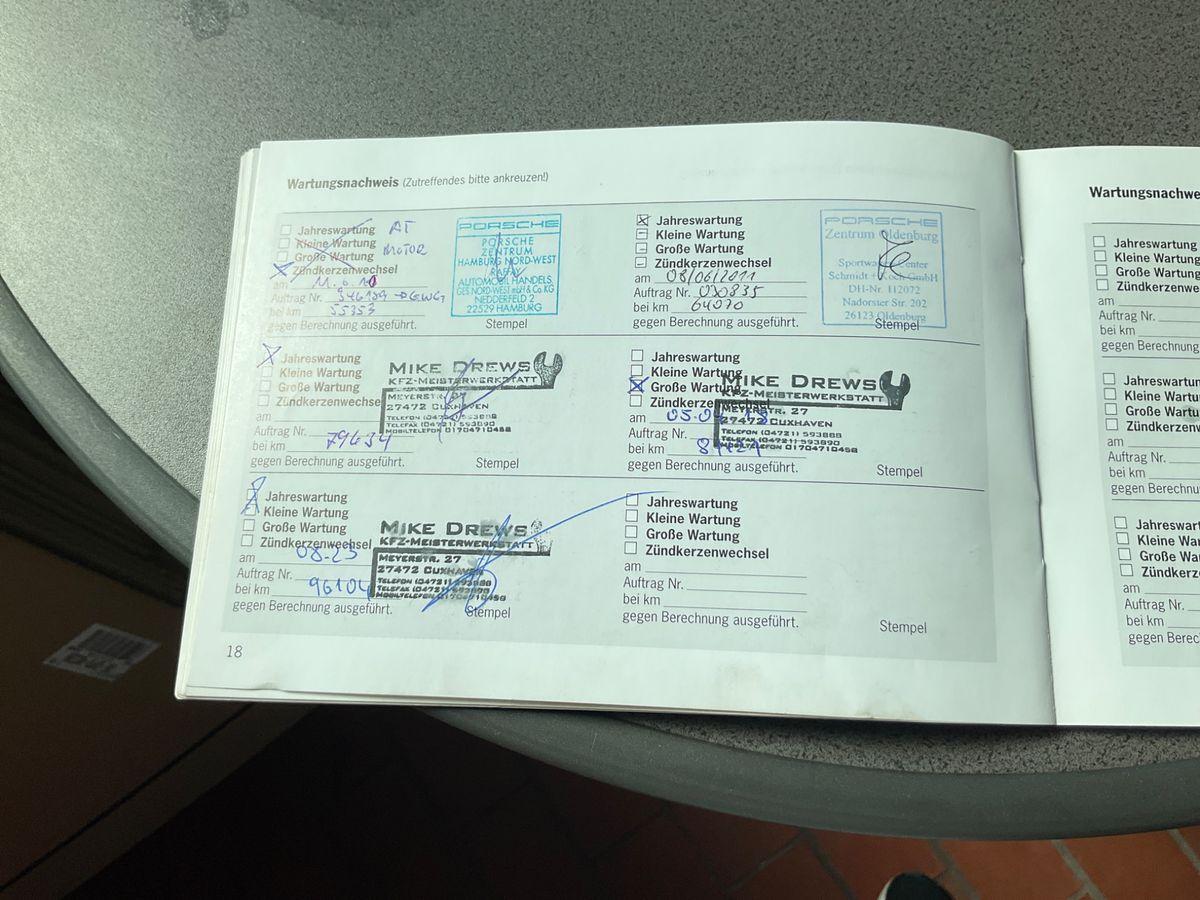 Wartungsnachweis (Zutreffendes bitte ankreuzen!)
Jahreswartung AT
Kleine Wartung MOTOR
Große Wartung
Zündkerzenwechsel
am
Auftrag Nr.
bei km 55353
gegen Berechnung ausgeführt.
PORSCHE
PORSCHE
ZENTRUM
HAMBURG NORD-WEST
RAFFAY
AUTOMOBIL HANDELS
GES NORD-WEST mbH & Co. KG
NEDDERFELD 2
22529 HAMBURG
Stempel
Jahreswartung
Kleine Wartung
Große Wartung
Zündkerzenwechsel
am 08/06/2011
Auftrag Nr. 030835
bei km 64070
gegen Berechnung ausgeführt.
PORSCHE
Zentrum Oldenburg
Sportwagen Center
Schmidt + Koch GmbH
DH-Nr. 112072
Nadorster Str. 202
26123 Oldenburg
Stempel
Jahreswartung
Kleine Wartung
Große Wartung
Zündkerzenwechsel
am
Auftrag Nr.
bei km 79634
gegen Berechnung ausgeführt.
MIKE DREWS
KFZ-MEISTERWERKSTATT
MEYERSTR. 27
27472 CUXHAVEN
TELEFON (04721) 593888
TELEFAX (04721) 593890
MOBILTELEFON 01704710458
Stempel
Jahreswartung
Kleine Wartung
Große Wartung
Zündkerzenwechsel
am
Auftrag Nr.
bei km
gegen Berechnung ausgeführt.
MIKE DREWS
KFZ-MEISTERWERKSTATT
MEYERSTR. 27
27472 CUXHAVEN
TELEFON (04721) 593888
TELEFAX (04721) 593890
MOBILTELEFON 01704710458
Stempel
Jahreswartung
Kleine Wartung
Große Wartung
Zündkerzenwechsel
am 08-23
Auftrag Nr.
bei km 96104
gegen Berechnung ausgeführt.
MIKE DREWS
KFZ-MEISTERWERKSTATT
MEYERSTR. 27
27472 CUXHAVEN
TELEFON (04721) 593888
TELEFAX (04721) 593890
MOBILTELEFON 01704710458
Stempel
Jahreswartung
Kleine Wartung
Große Wartung
Zündkerzenwechsel
am
Auftrag Nr.
bei km
gegen Berechnung ausgeführt.
Stempel
18
Wartungsnachwe
Jahreswartung
Kleine Wartung
Große Wartung
Zündkerzenwechs
am
Auftrag Nr.
bei km
gegen Berechnung
Jahreswartung
Kleine Wartung
Große Wartung
Zündkerzenwech
am
Auftrag Nr.
bei km
gegen Berechnung
Jahreswartung
Kleine Wartung
Große Wartung
Zündkerzenwech
am
Auftrag Nr.
bei km
gegen Berec